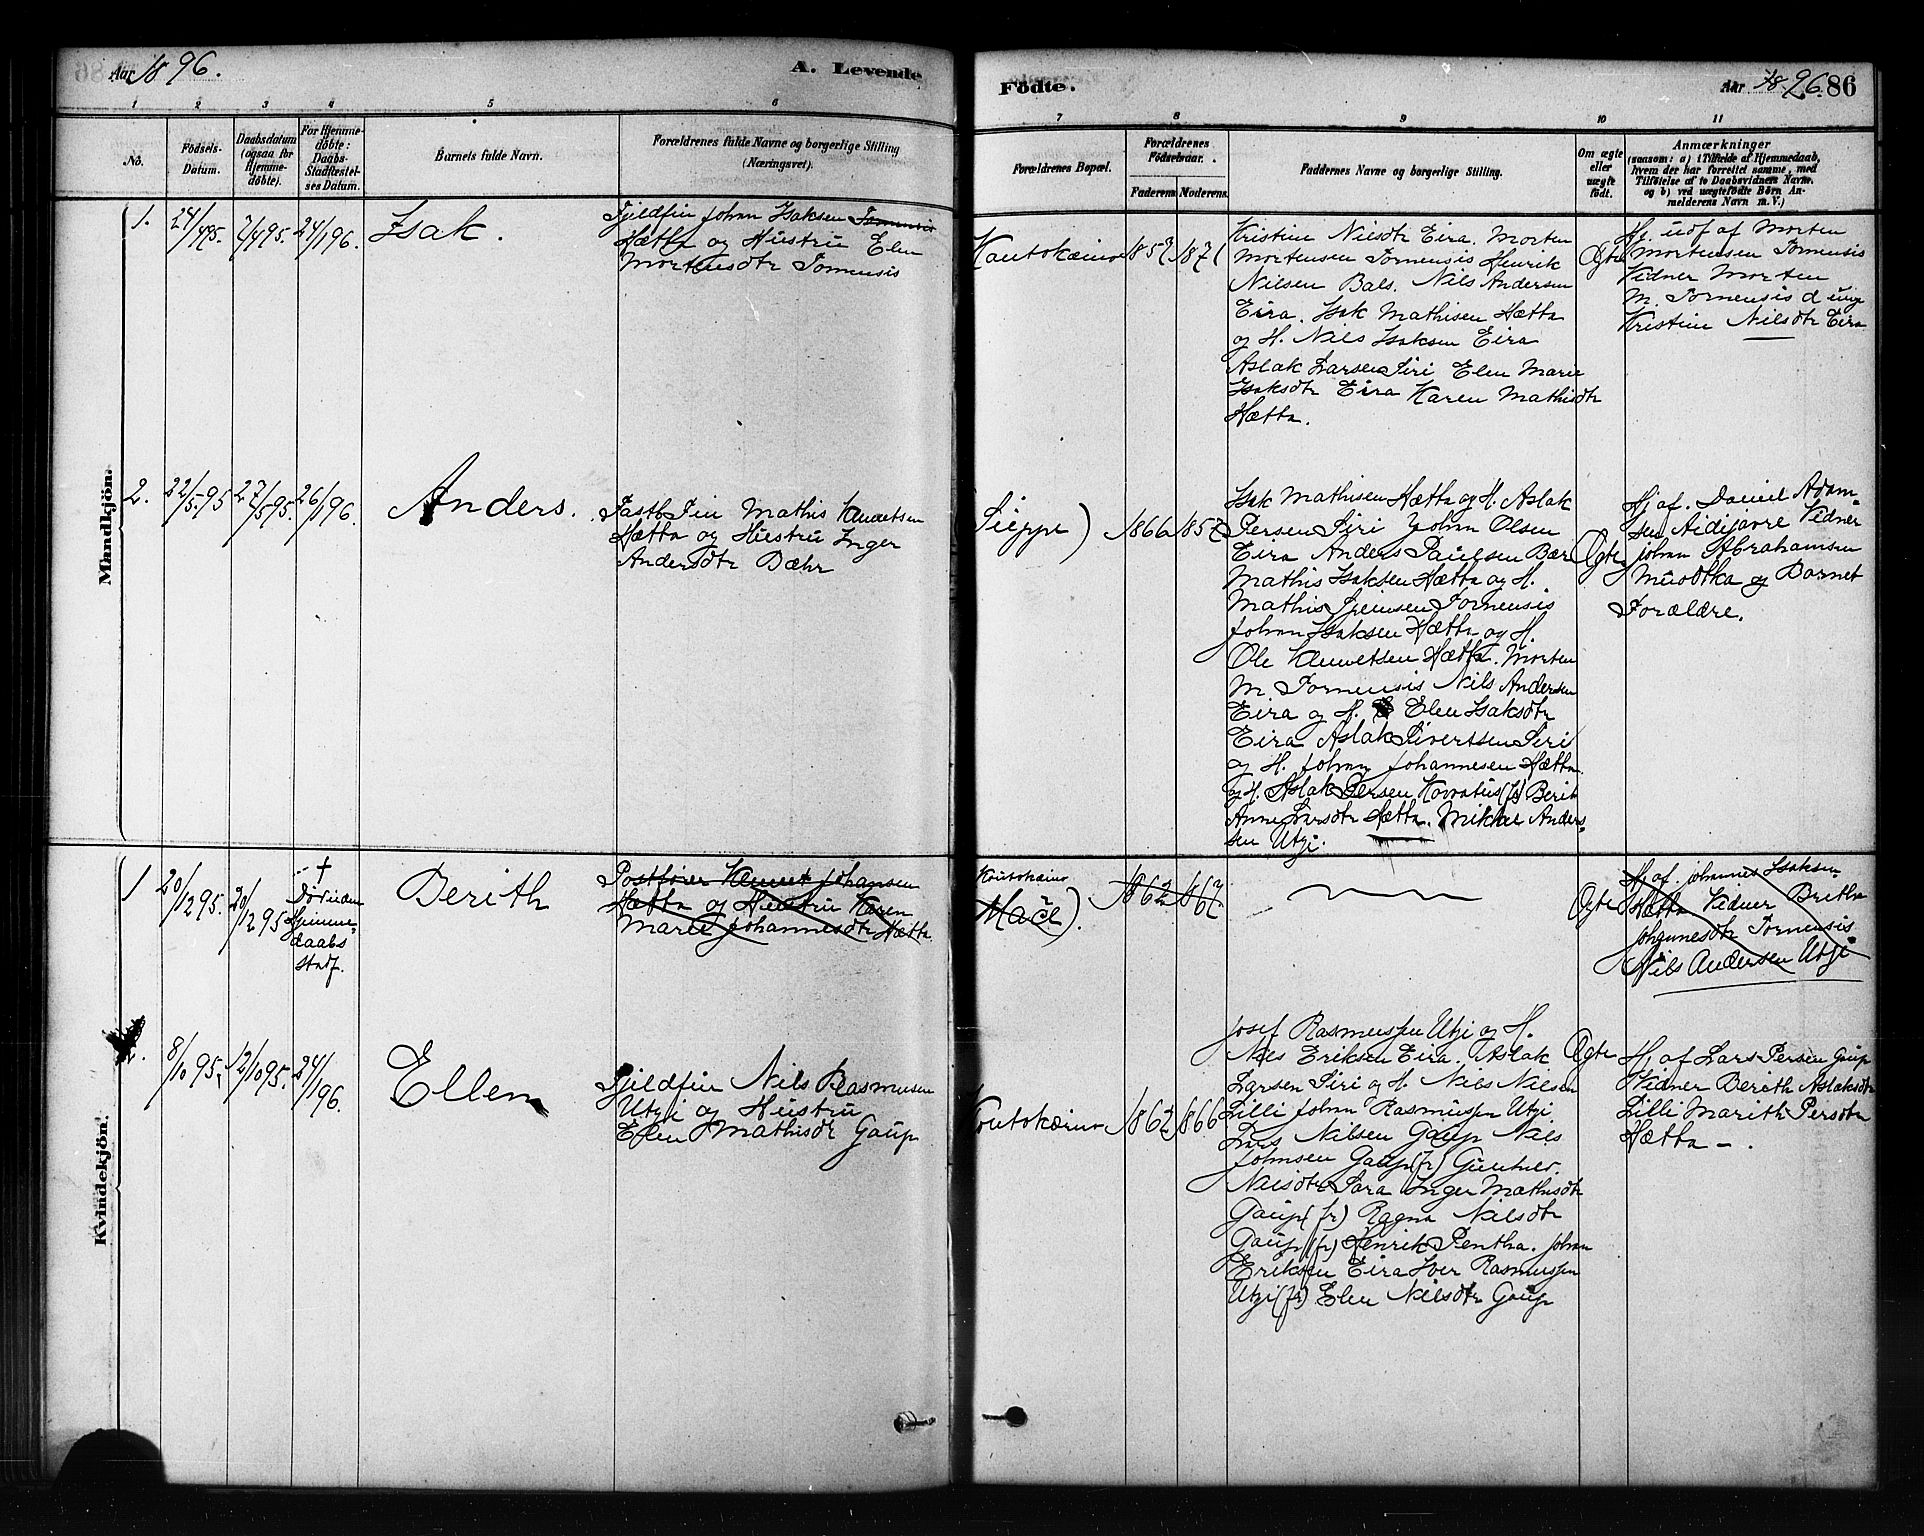 Aar 1896.
A. Levende
1 2 3 4 5 6
No.
Födsels-Datum.
Daabsdatum (ogsaa for Hjemme-döbte).
For Hjemme-döbte: Daabs-Stadfæstel-ses Datum.
Barnets fulde Navn.
Forældrenes fulde Navne og borgerlige Stilling (Næringsvei).
Mandkjön.
1. 24/4 95. 7/4 95. 24/1 96. Isak.
Fjeldfin Johan Isaksen
Hætta og Hustru Elen
Mortensdtr Tornensis
2. 22/5 95 27/5 95. 26/1 96. Anders.
Fastb. Fin Mathis
Hætta og Hustru Inger
Andersdtr Bæhr
Kvindekjön.
1 20/12 95. 12 95 †
Död uden
Hjemme-
daabs
stadf.
Berith
Postförer Johansen
Hætta og Hustru Karen
Marie Johannesdtr Hætta
2. 8/10 95. 12/10 95. 24/1 96. Ellen
Fjeldfin Nils Rasmussen
Utzi og Hustru
Elen Mathisdtr Gaup
Födte.
Aar 1896. 86
7 8 9 10 11
Forældrenes Bopæl.
Forældrenes Födselsaar.
Faderens Moderens.
Faddernes Navne og borgerlige Stilling.
Om ægte eller uægte födt.
Anmærkninger
(saasom: a) i Tilfælde af Hjemmedaab,
hvem der har forrettet samme, med
Tilföielse af to Daabsvidners Navne,
og b) ved uægtefödte Börn An-
melderens Navn m. V.)
Koutokæino 1853 1871
Kristine Nilsdtr Eira. Morten
Mortensen Tornensis Henrik
Nilsen Bals. Nils Andersen
Eira. Isak Mathisen Hætta
og H. Nils Isaksen Eira
Aslak Larsen Siri Elen Marie
Isaksdtr Eira Karen Mathisdtr
Hætta.
Ægte
Hj. udf af Morten
Mortensen Tornensis
Vidner Morten
M. Tornensis d unge
Kristine Nilsdtr Eira
Sieppe) 1866 1857
Isak Mathisen Hætta og H. Aslak
Persen Siri Johan Olsen
Eira Anders Paulsen Bær
Mathis Isaksen Hætta og H.
Mathis Tornensis
Johan Isaksen Hætta og H.
Ole Hætta. Morten
M. Tornensis Nils Andersen
Eira og H. Elen Isaksdtr
Eira Aslak Sivertsen Siri
og H. Johan Johannesen Hætta
og H. Aslak Persen (fr) Berit
Anne Larsdtr Hætta. Mikkel Anders-
sen Utzi.
Ægte
Hj. af. Daniel Adam-
sen Aidijavre Vidner
Johan Abrahamsen
og Barnet
Forældre.
Koutokæino
Maze). 1862 1867
Ægte
Hj. af. Johannes Isaksen
Hætta Vidner Britha
Johannesdtr Tornensis
Nils Andersen Utzi
Koutokæino 1862 1866
Josef Rasmussen Utzi og H.
Nils Eriksen Eira. Aslak
Larsen Siri og H. Nils Nilsen
Lilli Johan Rasmussen Utzi
Lars Nilsen Gaup Nils
Johnsen Gaup (fr)
Nilsdtr Sara Inger Mathisdtr
Gaup (fr) Ragna Nilsdtr
Gaup (fr) Henrik Pentha. Johan
Eriksen Eira Iver Rasmussen
Utzi (fr) Elen Nilsdtr Gaup
Ægte
Hj af Lars Persen Gaup
Vidner Berith Aslaksdtr
Lilli Marith Persdtr
Hætta – .